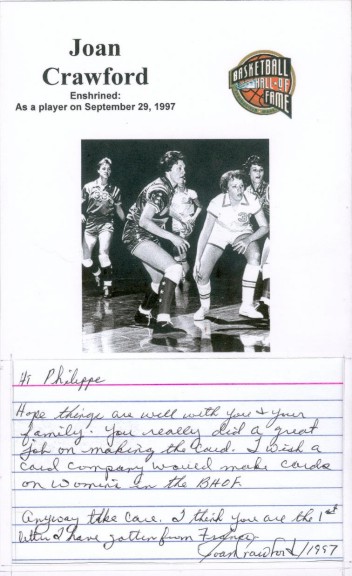 Joan
Crawford
Enshrined:
As a player on September 29, 1997
BASKETBALL
HALL-OF
FAME
3
Hi Philippe
Hope things are well with you & your
family. You really did a great
job on making the card. I wish a
card company would make cards
on women's in the BHOF.
Anyway take care. I think you are the 1st
letter I have gotten from France.
Joan Crawford/1997